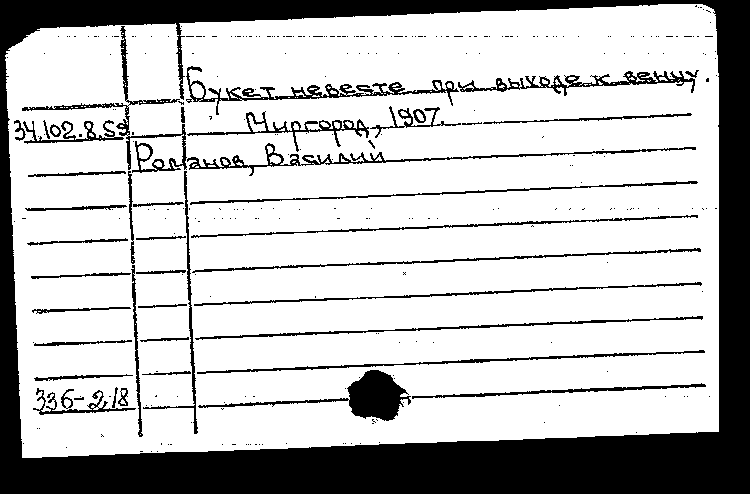 Букет невесте при выходе к венцу.
34.102.8.59. Миргород, 1907.
Романов, Василий
336-2/8